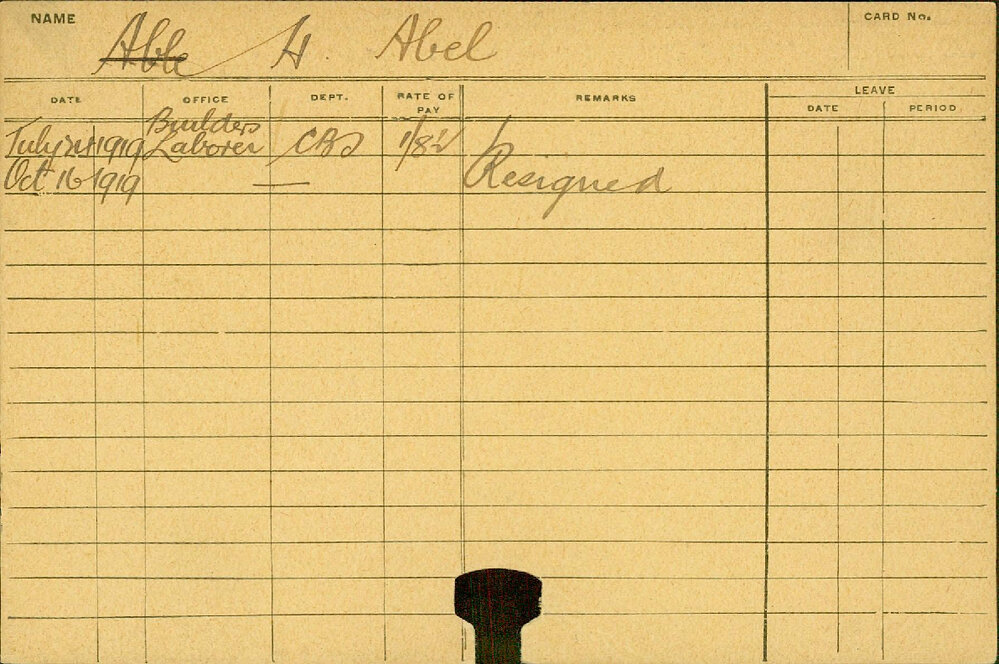 NAME Able H. Abel CARD No.
DATE OFFICE DEPT. RATE OF PAY REMARKS LEAVE
DATE PERIOD
July 24 1919 Builders Laborer CBS
Oct 16 1919 — Resigned